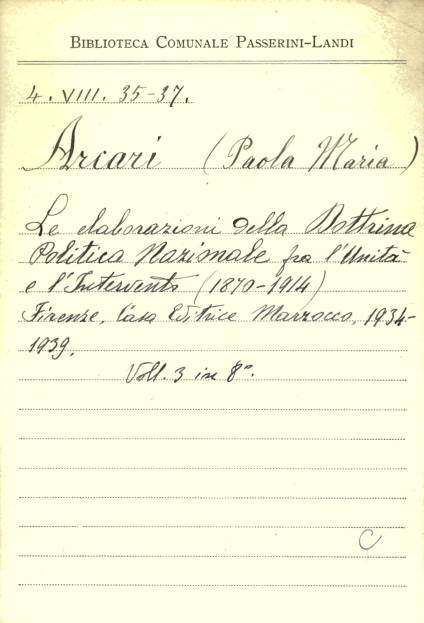 BIBLIOTECA COMUNALE PASSERINI-LANDI
4. VIII. 35-37.
Arcari (Paola Maria)
Le elaborazioni della Dottrina
Politica Nazionale fra l'Unità
e l'Intervento (1870-1914)
Firenze, Casa Editrice Marzocco, 1934-
1939.
Voll. 3 in 8°.
C